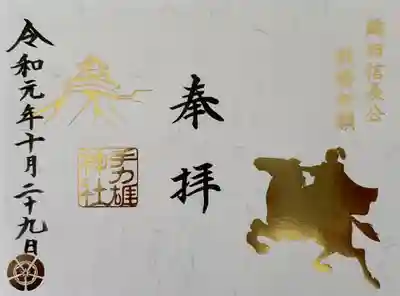 織田信長公
奉拝
手力雄
神社
令和元年十月二十九日